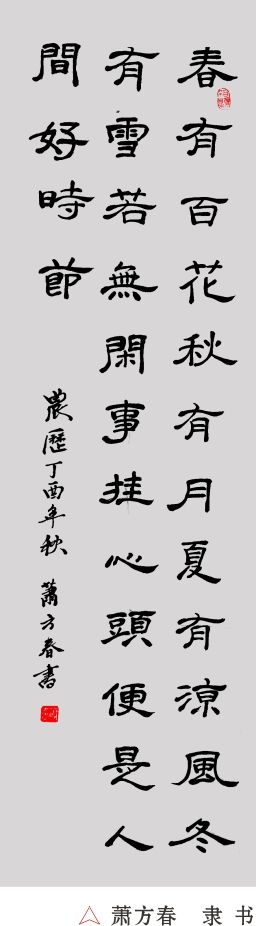 春有百花秋有月夏有涼風冬
有雪若無閑事挂心頭便是人
間好時節
農歷丁酉年秋 蕭方春書
蕭方春 隶书